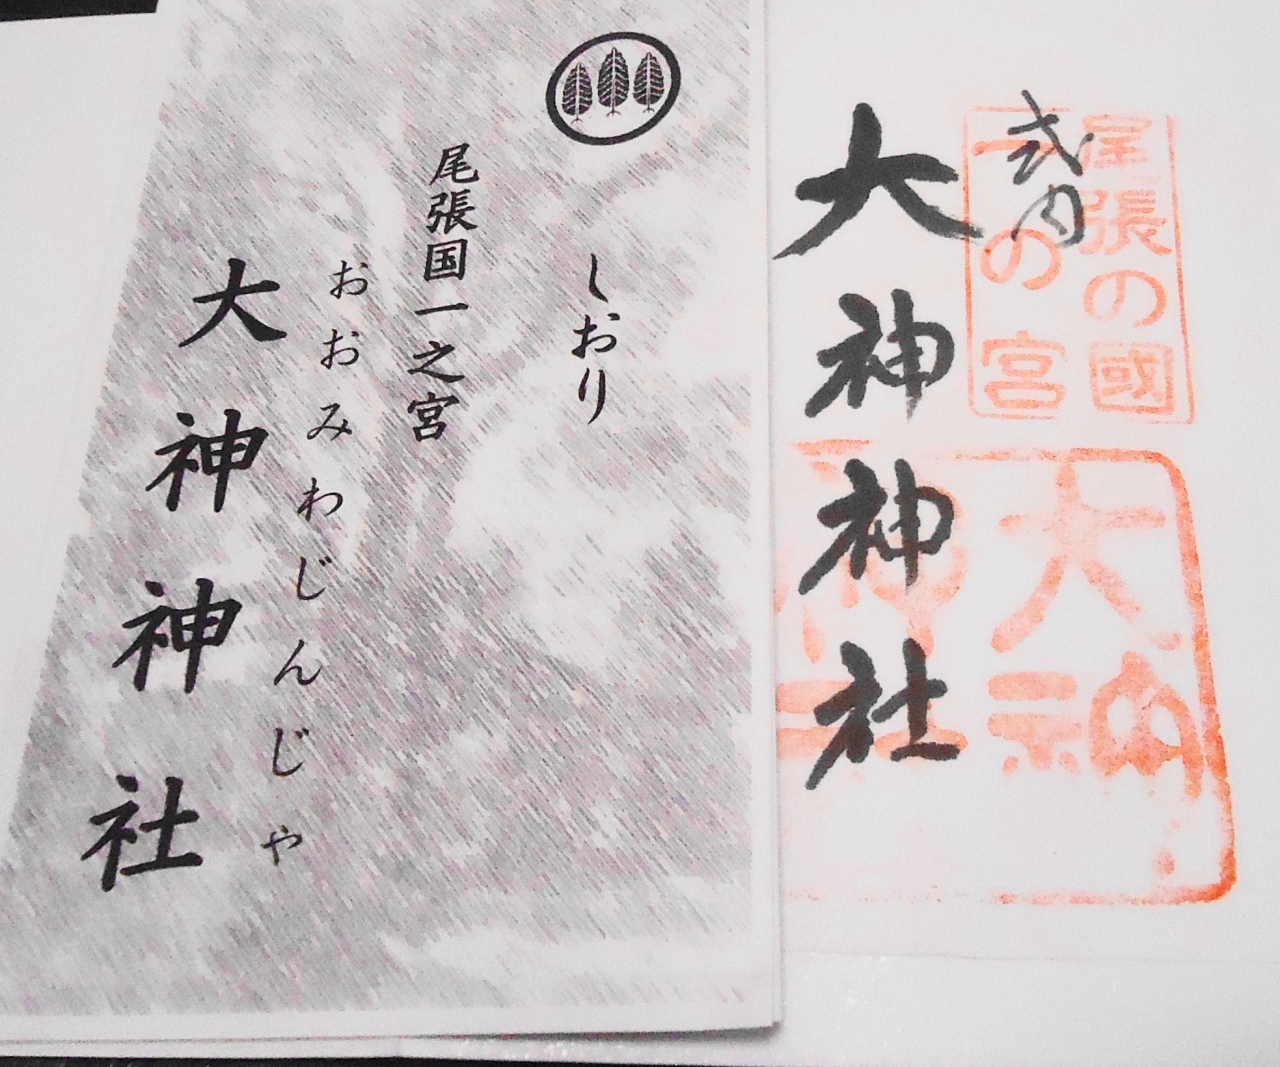 しおり
尾張国一之宮
おおみわじんじゃ
大神神社
尾張の國
一の宮
式内
大神神社
大神